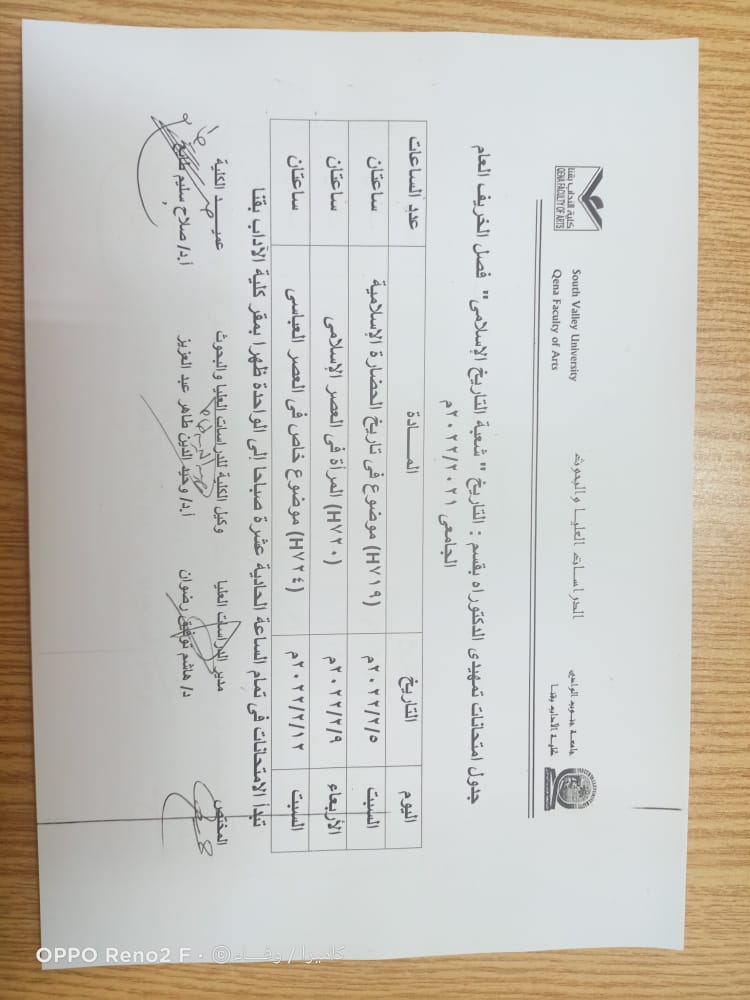 جامعة جنوب الوادي
كلية الآداب بقنا
الدراسات العليا والبحوث
South Valley University
Qena Faculty of Arts
كلية الآداب بقنا
QENA FACULTY OF ARTS
جدول امتحانات تمهيدى الدكتوراه بقسم : التاريخ " شعبة التاريخ الإسلامى" فصل الخريف العام
الجامعى ٢٠٢٢/٢٠٢١م
اليوم التاريخ المـــادة عدد الساعات
السبت ٢٠٢٢/٢/٥م (H٧١٩) موضوع فى تاريخ الحضارة الإسلامية ساعتان
الأربعاء ٢٠٢٢/٢/٩م (H٧٢٠) المرأة فى العصر الإسلامى ساعتان
السبت ٢٠٢٢/٢/١٢م (H٧٢٤) موضوع خاص فى العصر العباسى ساعتان
تبدأ الامتحانات فى تمام الساعة الحادية عشرة صباحا إلى الواحدة ظهرا بمقر كلية الآداب بقنا
المختص مدير الدراسات العليا وكيل الكلية للدراسات العليا والبحوث عميـــد الكلية
د/ هاشم توفيق رضوان أ.د/ وحيد الدين طاهر عبد العزيز أ.د/ صلاح سليم طايع
OPPO Reno2 F · ©كاميرا / وفـــاء